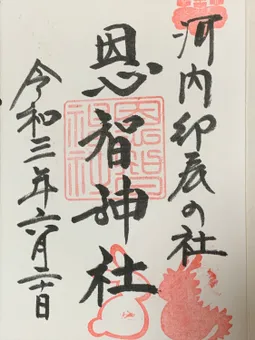 河内卯辰の社
恩智神社
令和三年六月二十日